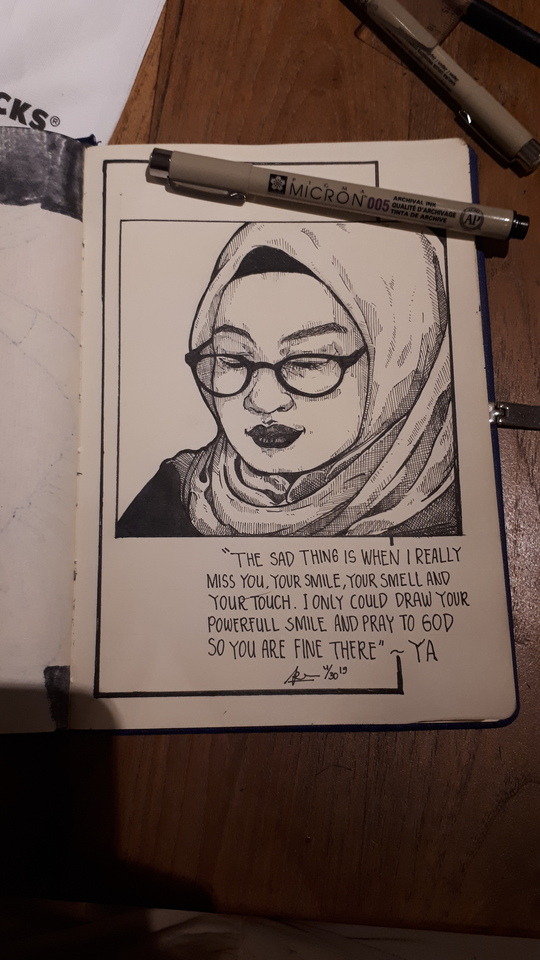 CKS®
PIGMA
MICRON™ 005 ARCHIVAL INK
QUALITÉ D'ARCHIVAGE
TINTA DE ARCHIVO
AP
"THE SAD THING IS WHEN I REALLY
MISS YOU, YOUR SMILE, YOUR SMELL AND
YOUR TOUCH. I ONLY COULD DRAW YOUR
POWERFULL SMILE AND PRAY TO GOD
SO YOU ARE FINE THERE" ~ YA
4/30 19